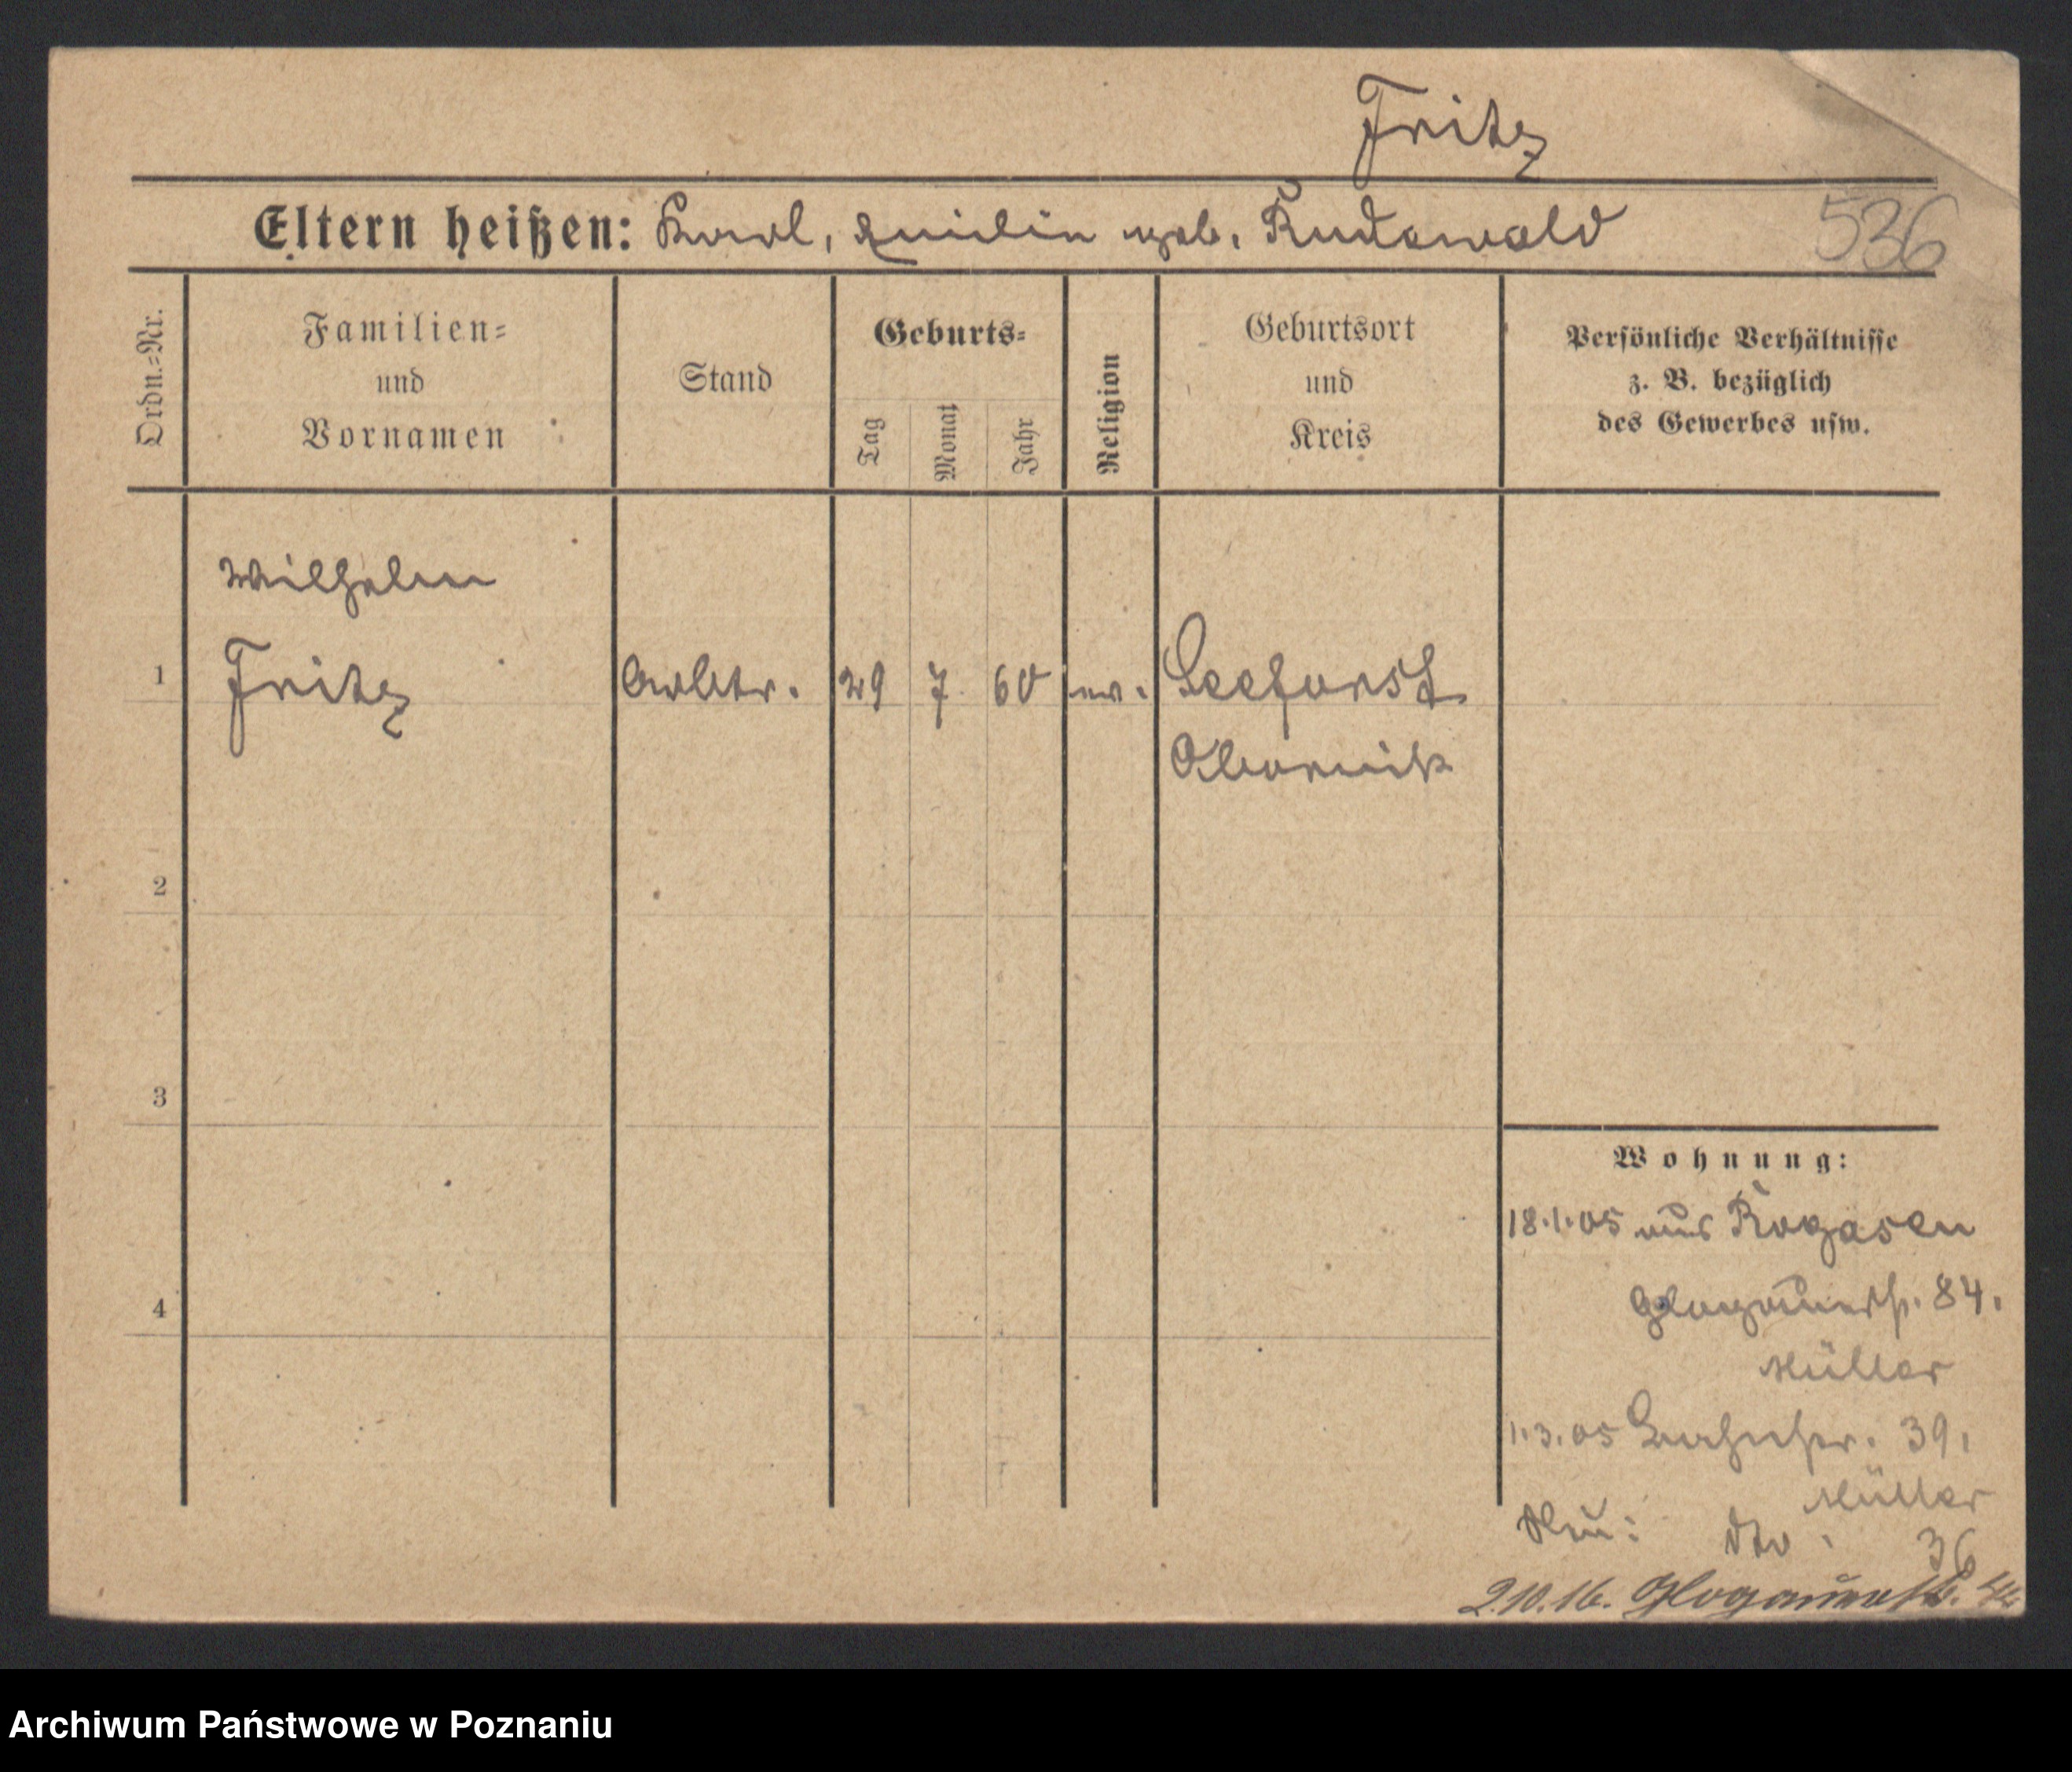 Fritz
Eltern heißen: Karl, Emilie geb. Rudewald
536
Ordn.=Nr.
Familien=
und
Vornamen
Stand
Geburts=
Tag
Monat
Jahr
Religion
Geburtsort
und
Kreis
Persönliche Verhältnisse
z. B. bezüglich
des Gewerbes usw.
Wilhelm
1 Fritz Arbtr. 29 7 60 ev. Seeforst
Obornik
2
3
4
Wohnung:
18.1.05 aus Rogasen
Glogauerstr. 84.
Müller
1.3.05 39,
Müller
Neu: dto. 36
2.10.16. Glogauerstr.
Archiwum Państwowe w Poznaniu